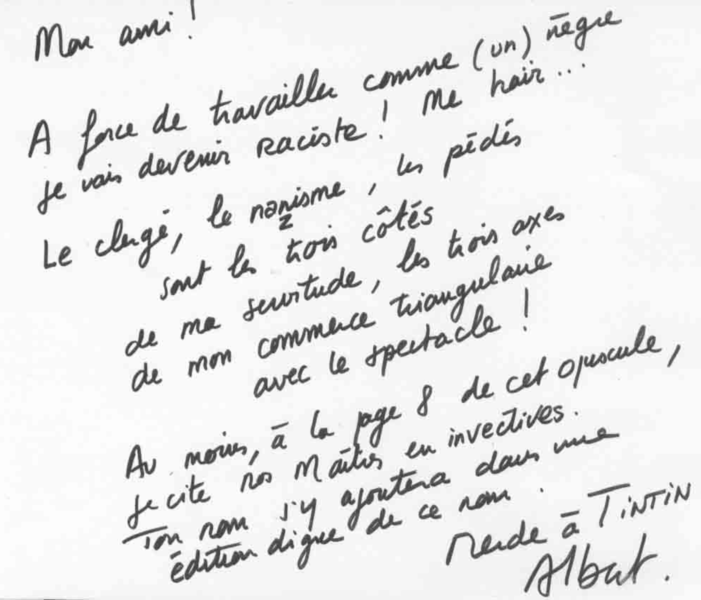 Mon ami !
A force de travailler comme (un) nègre
je vais devenir raciste ! Me haïr...
Le clergé, le nanisme, les pédés
z
sont les trois côtés
de ma servitude, les trois axes
de mon commerce triangulaire
avec le spectacle !
Au moins, à la page 8 de cet opuscule,
je cite nos Maîtres en invectives.
Ton nom s'y ajoutera dans une
édition digne de ce nom.
Merde à TINTIN
Albert.